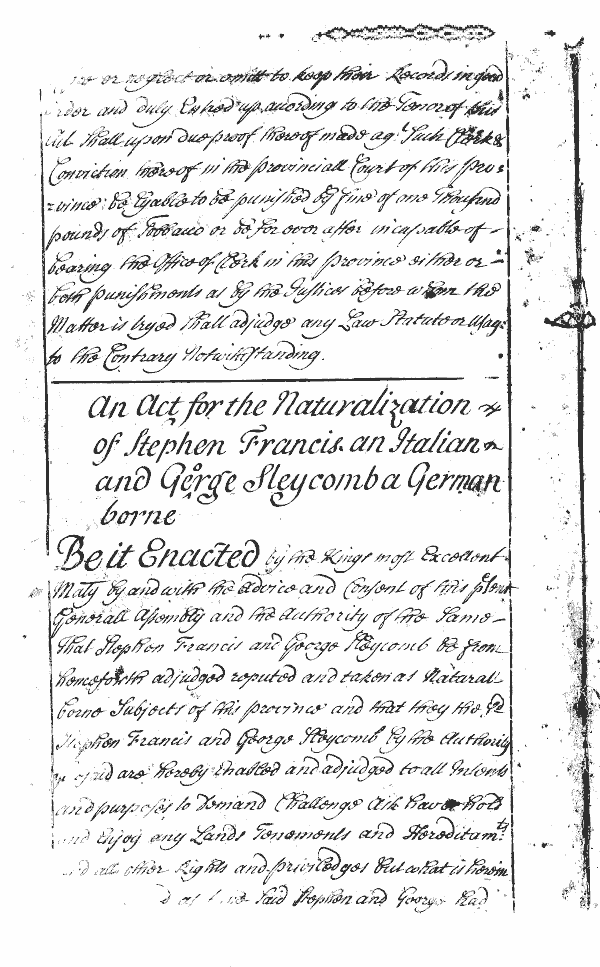 or neglect or omitt to keep their Records in good
order and duly Entred up according to the Tenor of this
Act Shall upon due proof thereof made ag.t Such Clerk &
Conviction thereof in the provinciall Court of this Pro=
=vince be lyable to be punished by fine of one Thousand
pounds of Tobbacco or be for ever after incapable of -
bearing the Office of Clerk in this province either or -
both punishments as by the Justices before whom the
Matter is tryed Shall adjudge any Law Statute or Usage
to the Contrary Notwithstanding.
An Act for the Naturalization
of Stephen Francis an Italian
and George Sleycomb a German
borne
Be it Enacted by the Kings most Excellent
Maty by and with the advice and Consent of this p̃sent
Generall Assembly and the Authority of the Same -
That Stephen Francis and George Sleycomb be from
henceforth adjudged reputed and taken as Naturall
borne Subjects of this province and that they the s.d
Stephen Francis and George Sleycomb by the Authority
afores'd are hereby Enabled and adjudged to all Intents
and purposes to Demand Challenge Ask have hold
and Enjoy any Lands Tenements and Hereditam.ts
and all other Rights and priviledges but what is herein
d as the Said Stephen and George had